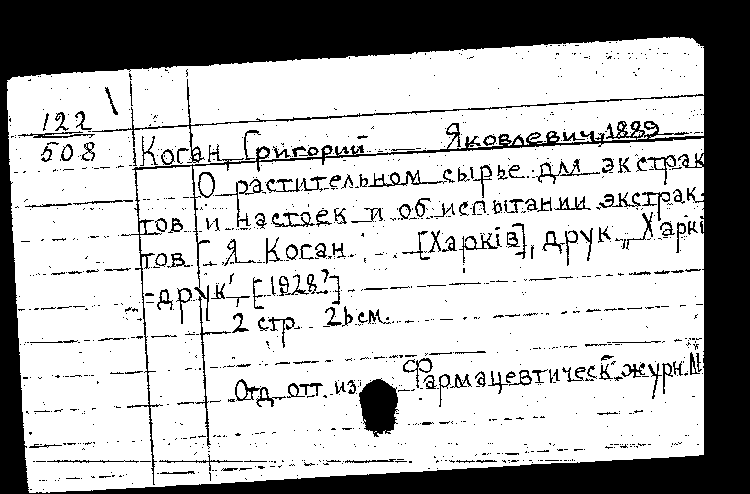 122
508
Коган, Григорий Яковлевич, 1889
О растительном сырье для экстрак
тов и настоек и об испытании экстрак-
тов Я Коган. [Харкiв], друк „Харкi
-друк", [1928?]
2 стр 26 см.
Отд. отт. из Фармацевтическ. журн. №